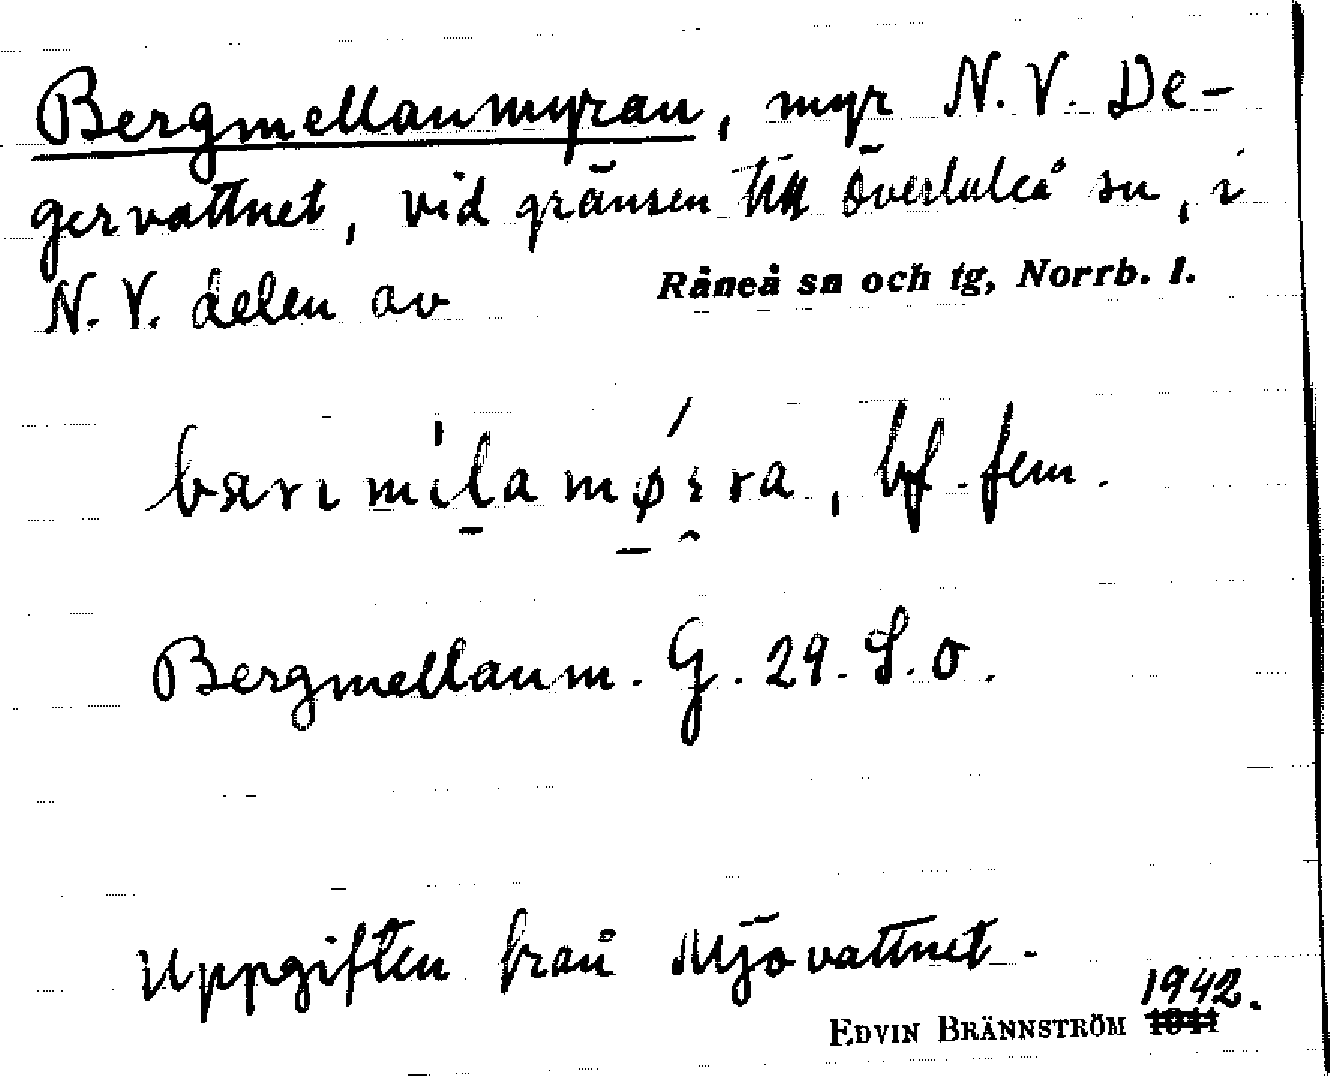 Bergmellanmyran, myr N.V. De-
gervattnet, vid gränsen till Överluleå sn, i
N.V. delen av Råneå sn och tg, Norrb. l.
bf. fem.
Bergmellanm. G. 29. S.O.
Uppgiften från Mjövattnet.
EDVIN BRÄNNSTRÖM 1942.